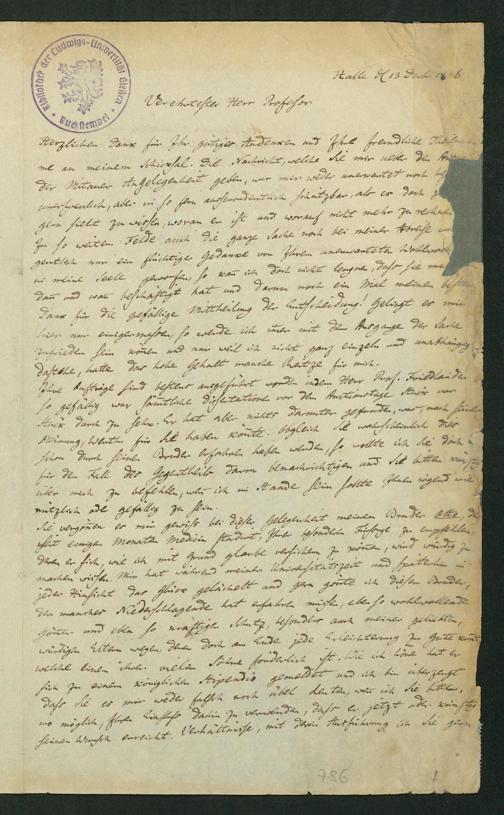 Bibliothek der Ludwigs-Universität Gießen
Buchstempel
Halle d 13 Decbr
Verehrtester Herr Professor
Herzlichen Dank für Ihr gütiges Andenken und Ihre freundliche
me an meinem Schicksal. Die Nachricht, welche Sie mir ueber den
der Mitauer Angelegenheit geben, war mir weder unerwartet noch
unerfreulich, aber in so fern außerordentlich schätzbar, als er doch
gern sieht zu wissen, woran er ist und worauf nicht mehr zu rechnen
In so weitem Felde auch die ganze Sache noch bei meiner Abreise
gentlich nur ein flüchtiger Gedanke von Ihrem unerwarteten Wohlwollen
in meine Seele geworfen, so war ich doch nicht, daß sie
dann und wann beschäftigt hat und darum noch ein Mal meinen besten
Dank für die gefällige Mittheilung der Entscheidung. Gelingt es mir
hier nur einigermaßen, so werde ich immer mit dem Ausgange der Sache
zufrieden sein können und nur weil ich nicht ganz einzeln und unabhängig
dastehe, hatte das hohe Gehalt manche Reitze für mich.
Ihre Aufträge sind bestens ausgeführt worden indem Herr Prof. Friedländer
so gefällig war sämtliche Dissertationen vor dem Auctionstage
durch zu sehen. Er hat aber nichts darunter gefunden, was, nach seiner
Meinung, Werth für Sie haben könnte. Obgleich Sie wahrscheinlich dies
schon durch seinen Bruder erfahren haben werden, so wollte ich Sie doch
für den Fall des Gegentheils davon benachrichtigen und Sie bitten,
über mich zu befehlen, wenn ich im Stande sein sollte Ihnen irgend wie
nützlich oder gefällig zu sein.
Sie vergönnen es mir gewiß bei dieser Gelegenheit meinen Bruder, der
seit einigen Monaten Medicin studirt, Ihrer besondern Fürsorge zu empfehlen
deren er sich, wie ich mit Grund glaube versichern zu können, wird würdig zu
machen wissen. Mir hat während meiner Universitätszeit und späterhin in
jeder Hinsicht das Glück gelächelt und gern gönnte ich diesem Bruder,
der mancher Niederschlagende hat erfahren müssen, eben so wohlwollende
Gönner und eben so kräftigen Schutz, besonders auch meiner geliebten,
würdigen Eltern wegen, denen doch am Ende jede Erleichterung zu Gute kömmt
welche einem ihrer vielen Söhne förderlich ist. Wie ich höre hat er
sich zu einem königlichen Stipendio gemeldet und ich bin überzeugt
daß Sie es mir weder falsch noch übel deuten, wenn ich Sie bitte,
wo möglich, Ihren Einfluß dahin zu verwenden, daß er jetzt oder künftig
seinen Wunsch erreicht. Verhältnisse, mit deren Ausführung ich Sie gern
756
1